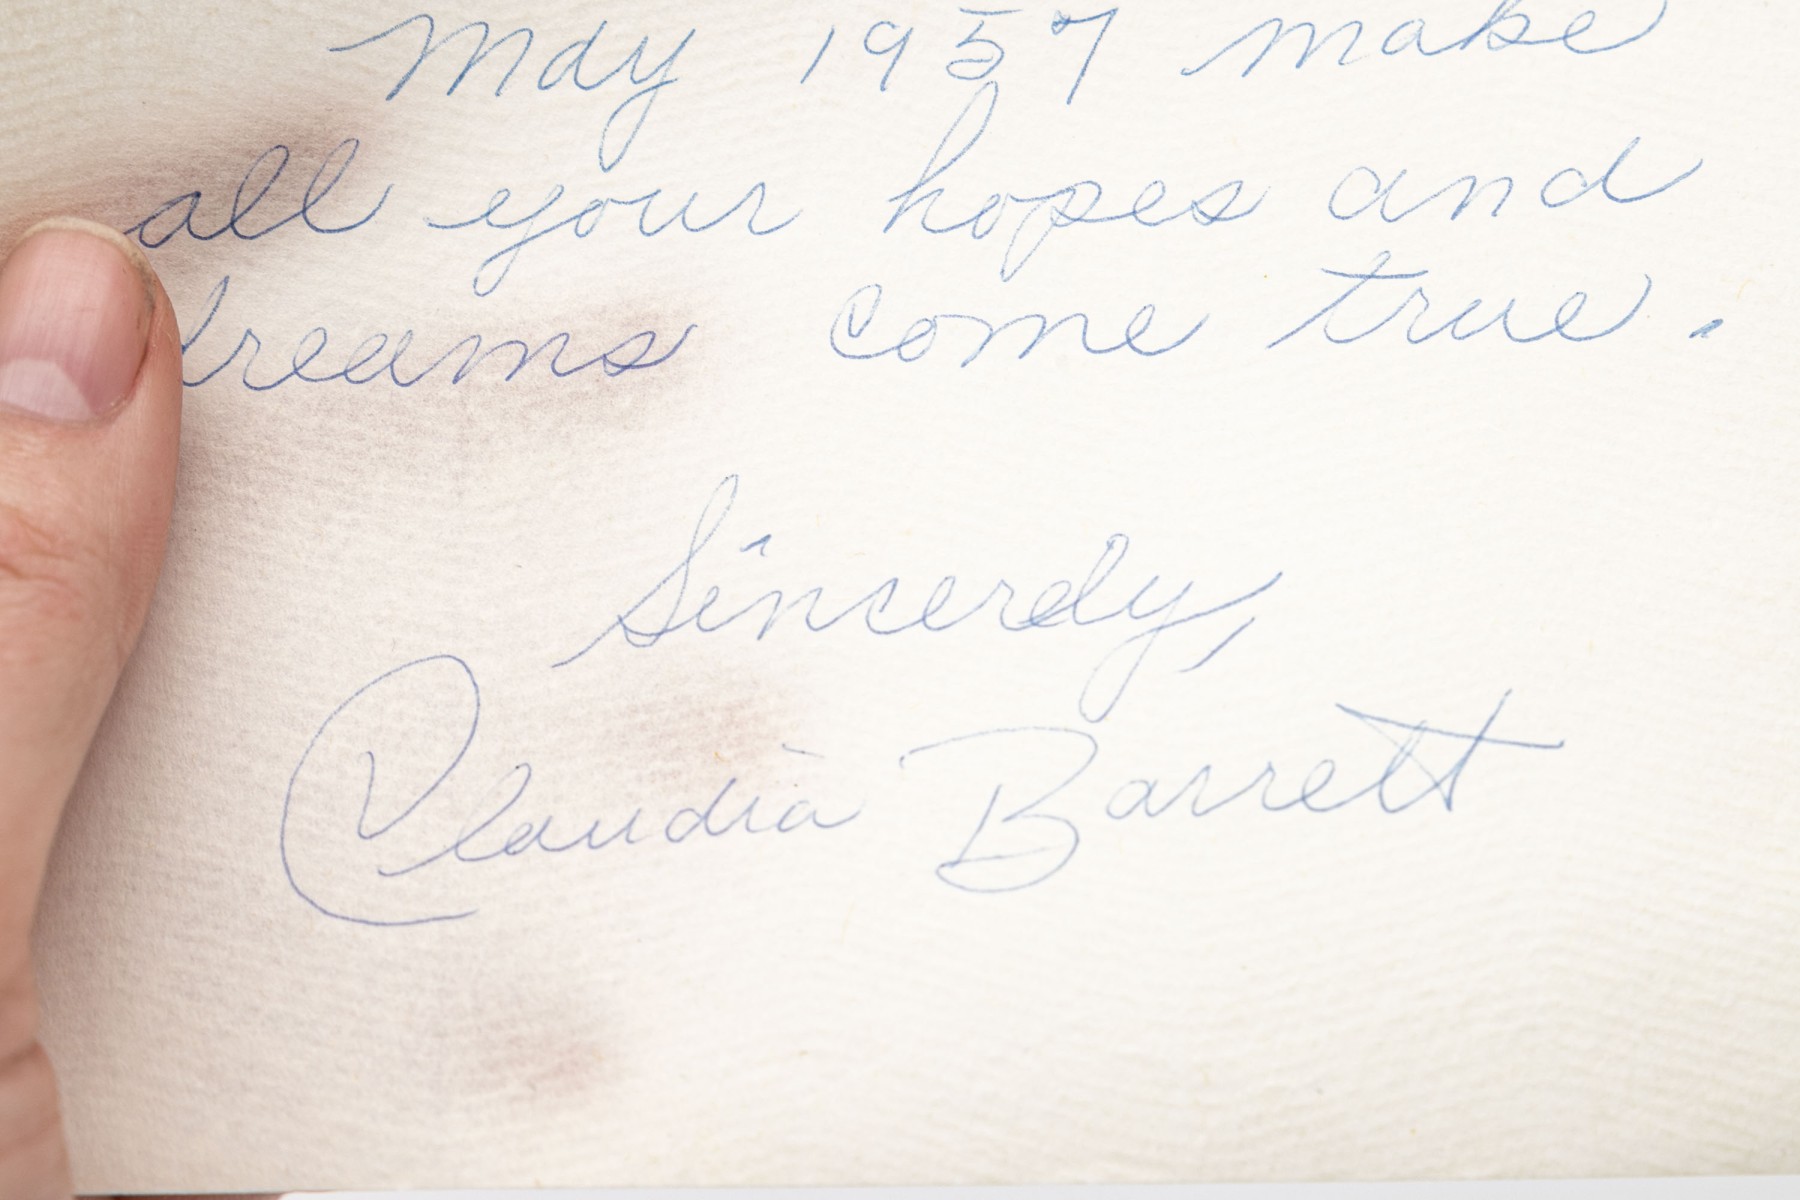 May 1957 make
all your hopes and
dreams come true.
Sincerely,
Claudia Barrett